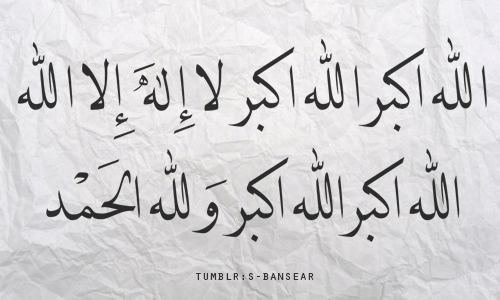 الله اكبر الله اكبر الله اكبر لا إله إلا الله
الله اكبر الله اكبر و لله الحمد
TUMBLR:S-BANSEAR